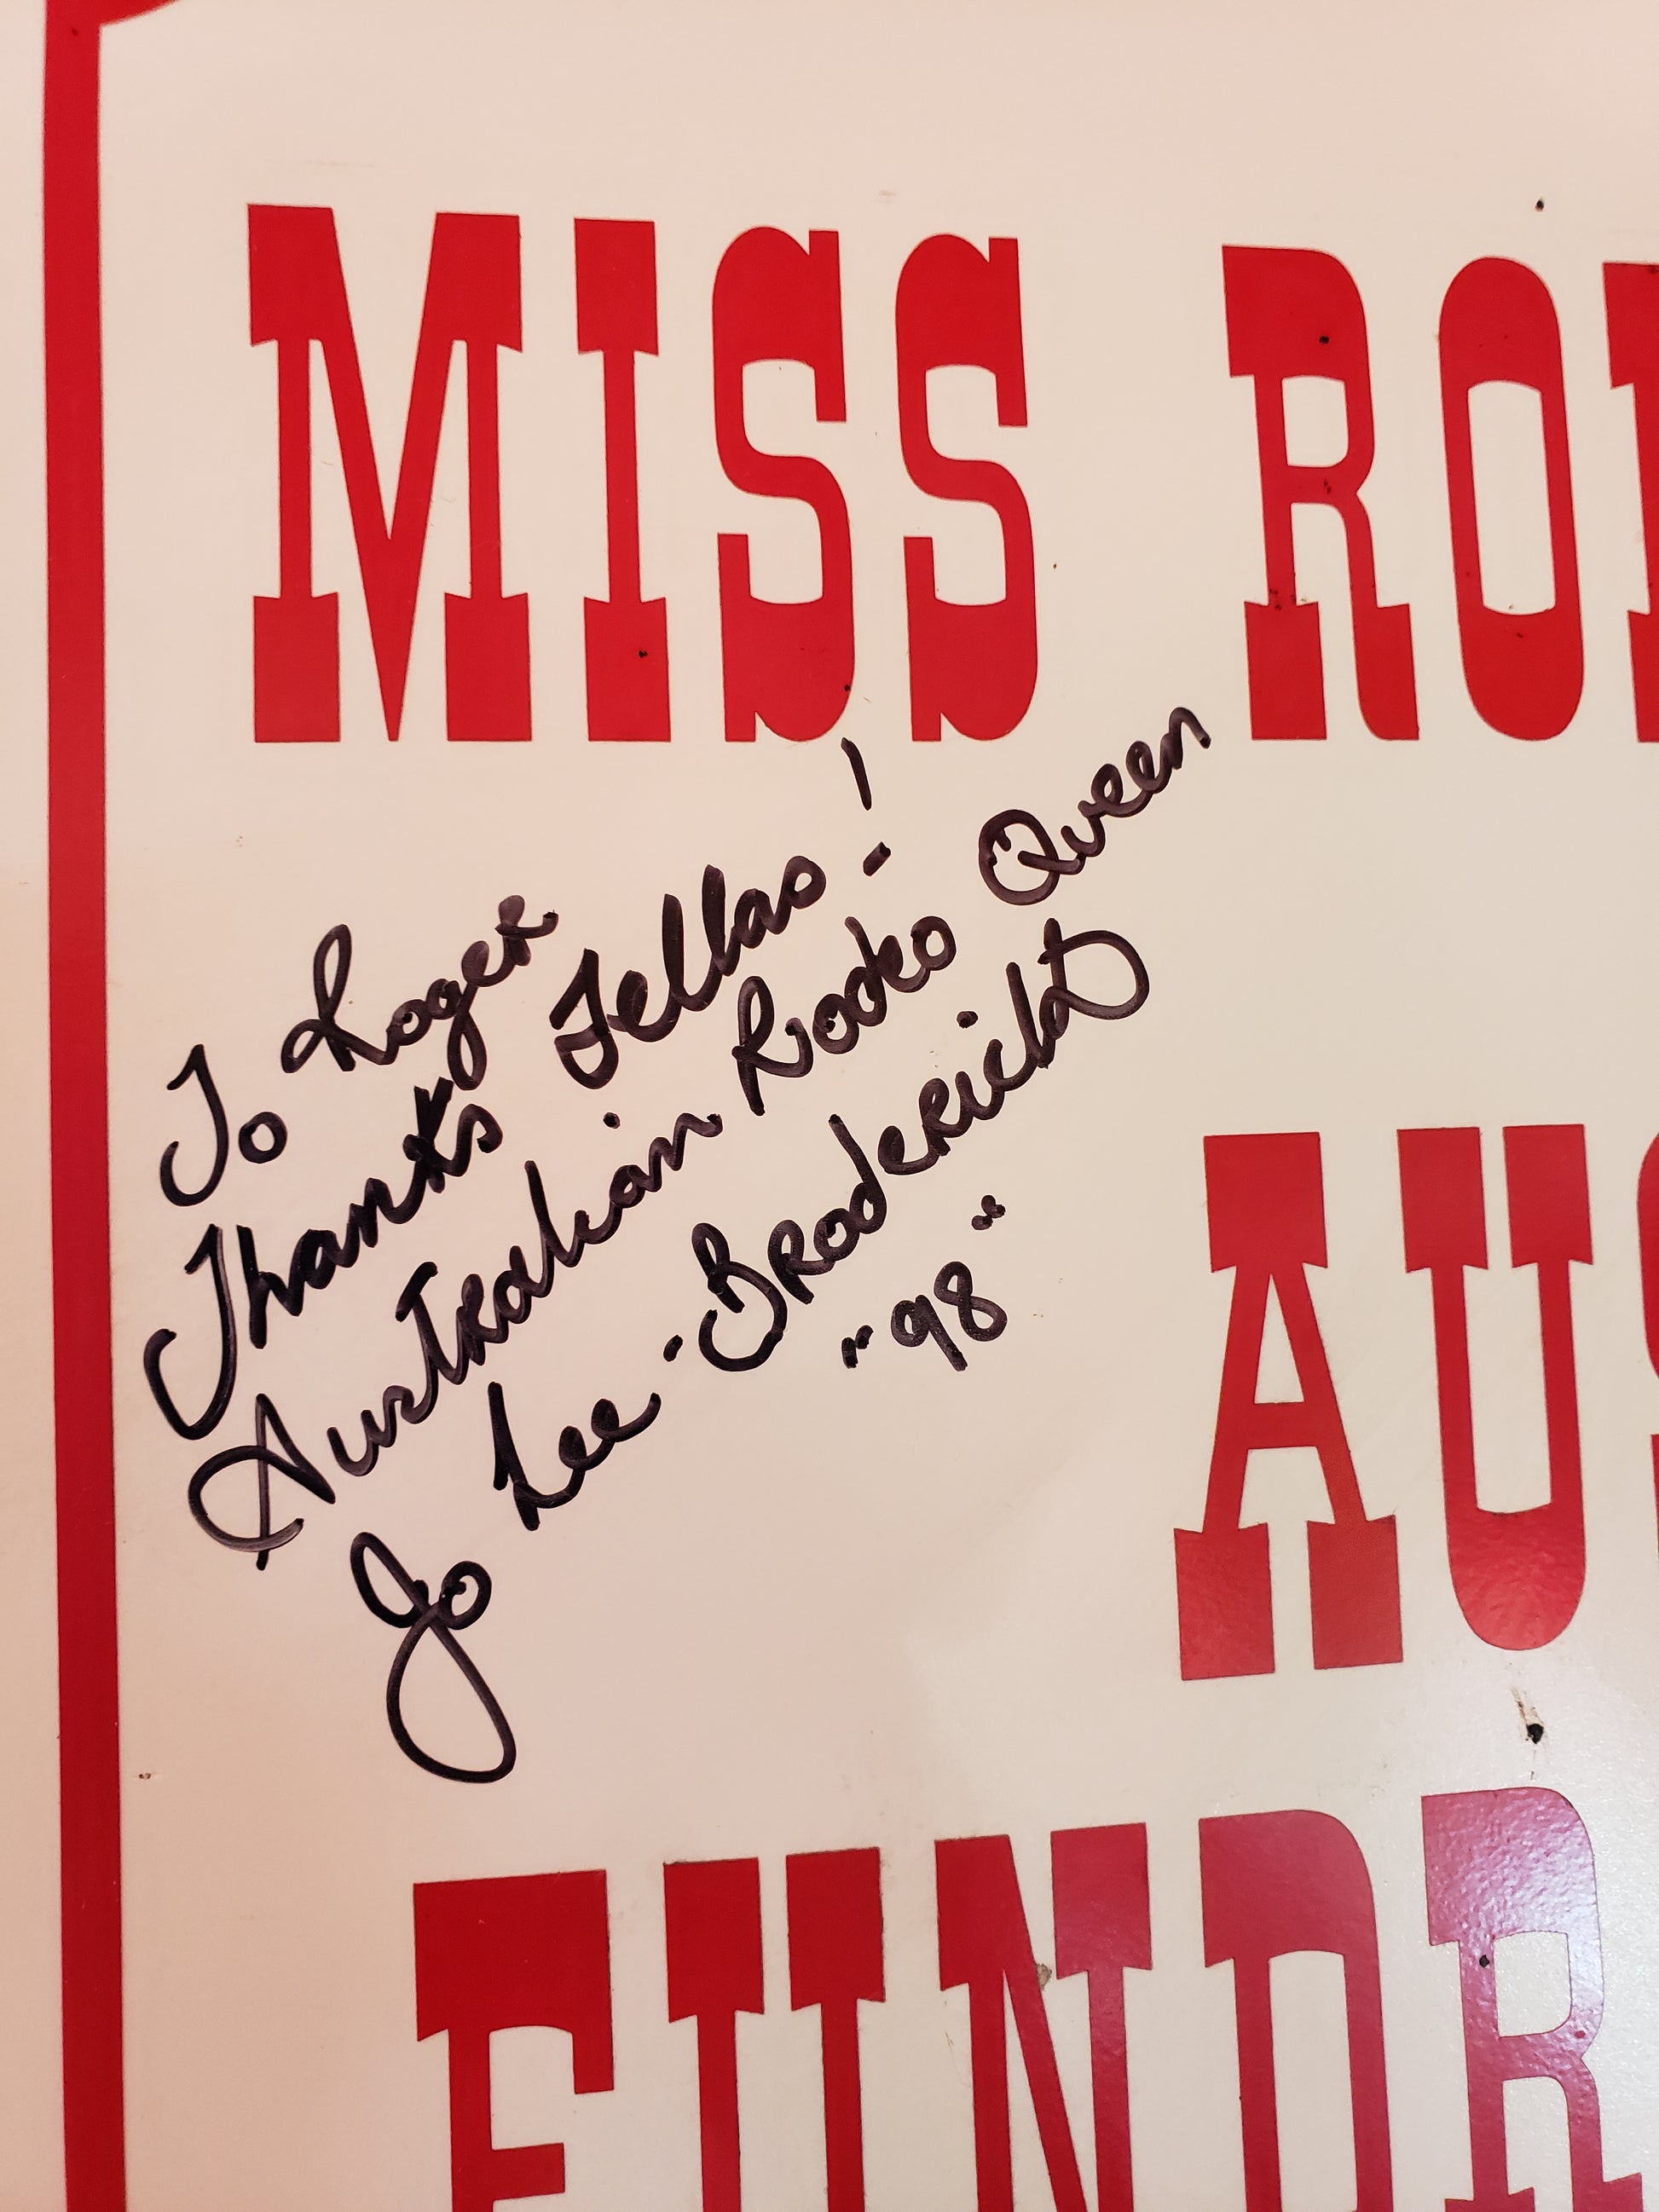 MISS RO
To Roger
Thanks Fellas!
Australian Rodeo Queen
Jo Lee-Broderick
"98"
AUS
FUNDR